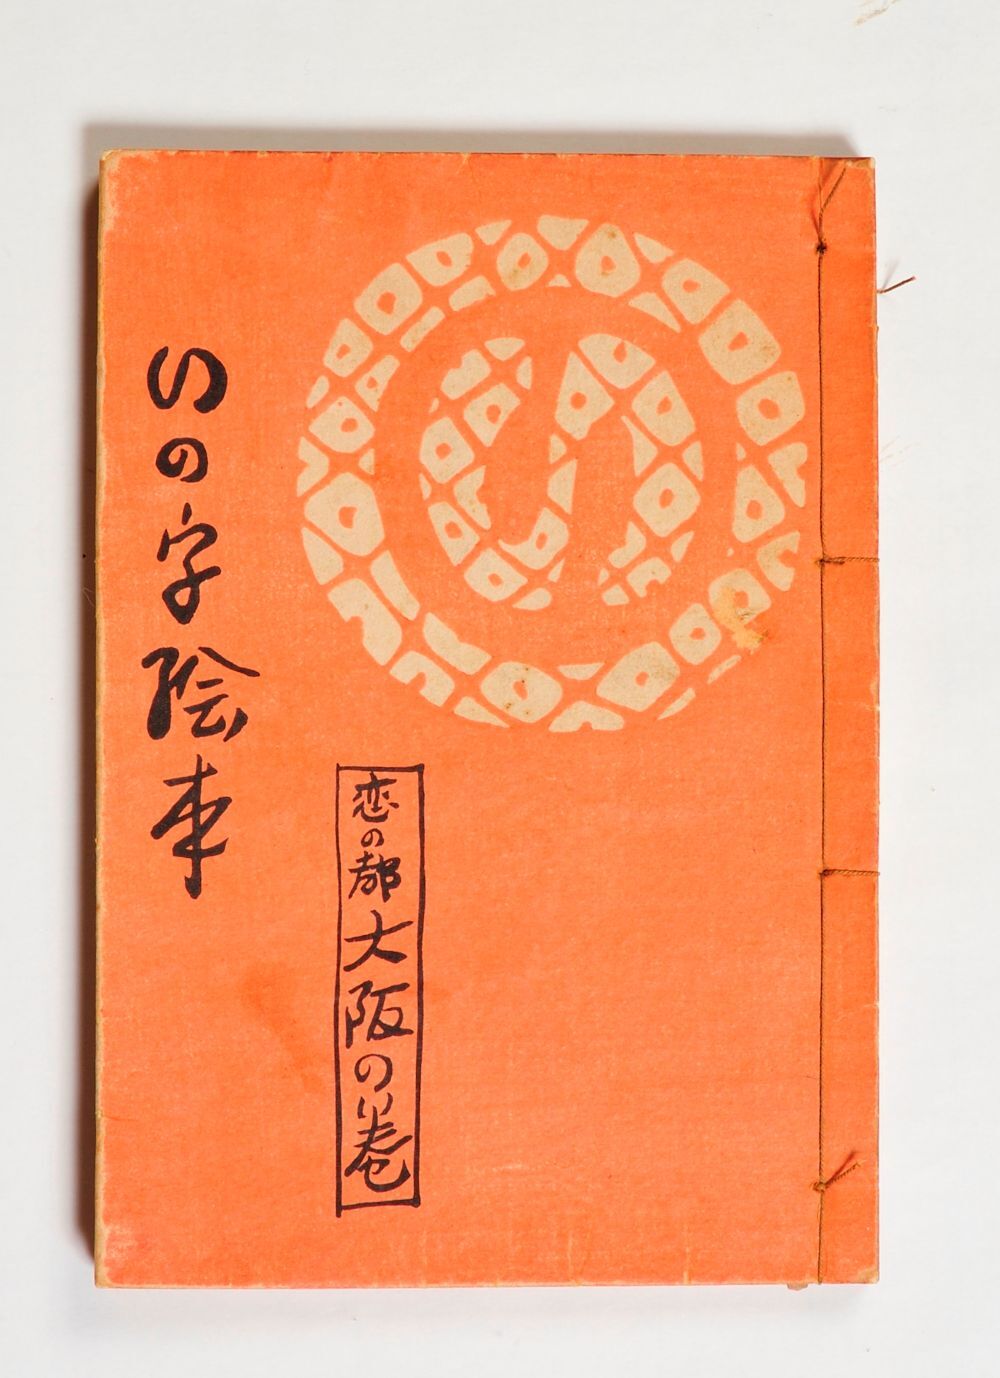 いの字絵本
恋の都大阪の巻